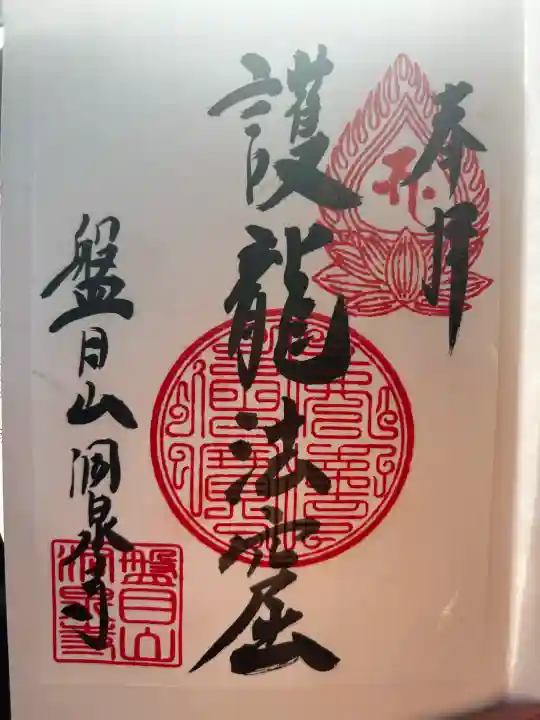 奉拝
護龍法窟
盤日山洞泉寺
盤日山
洞泉寺